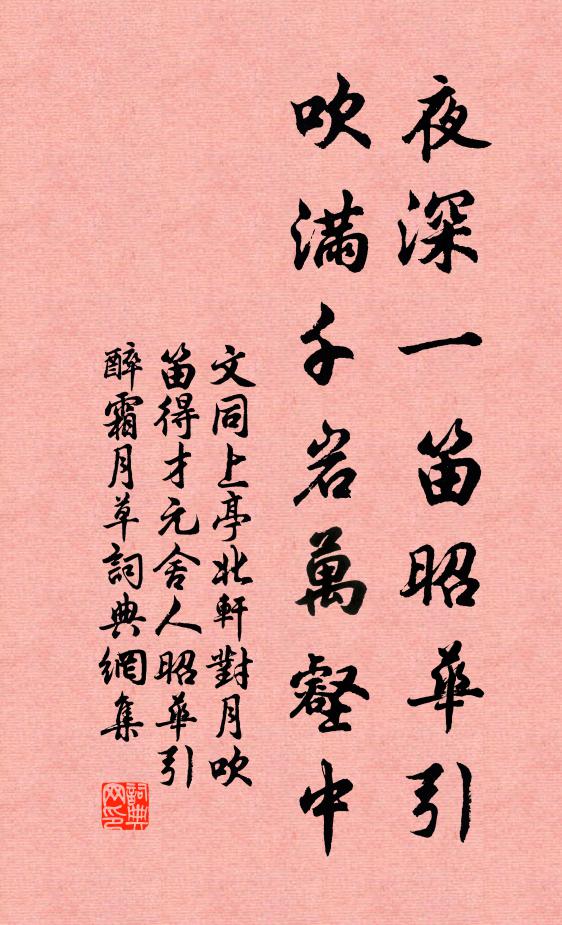 夜深一笛昭華引
吹滿千岩萬壑中
文同上亭北軒對月吹
笛得才元舍人昭華引
醉霜月草詞典網集
詞典网印